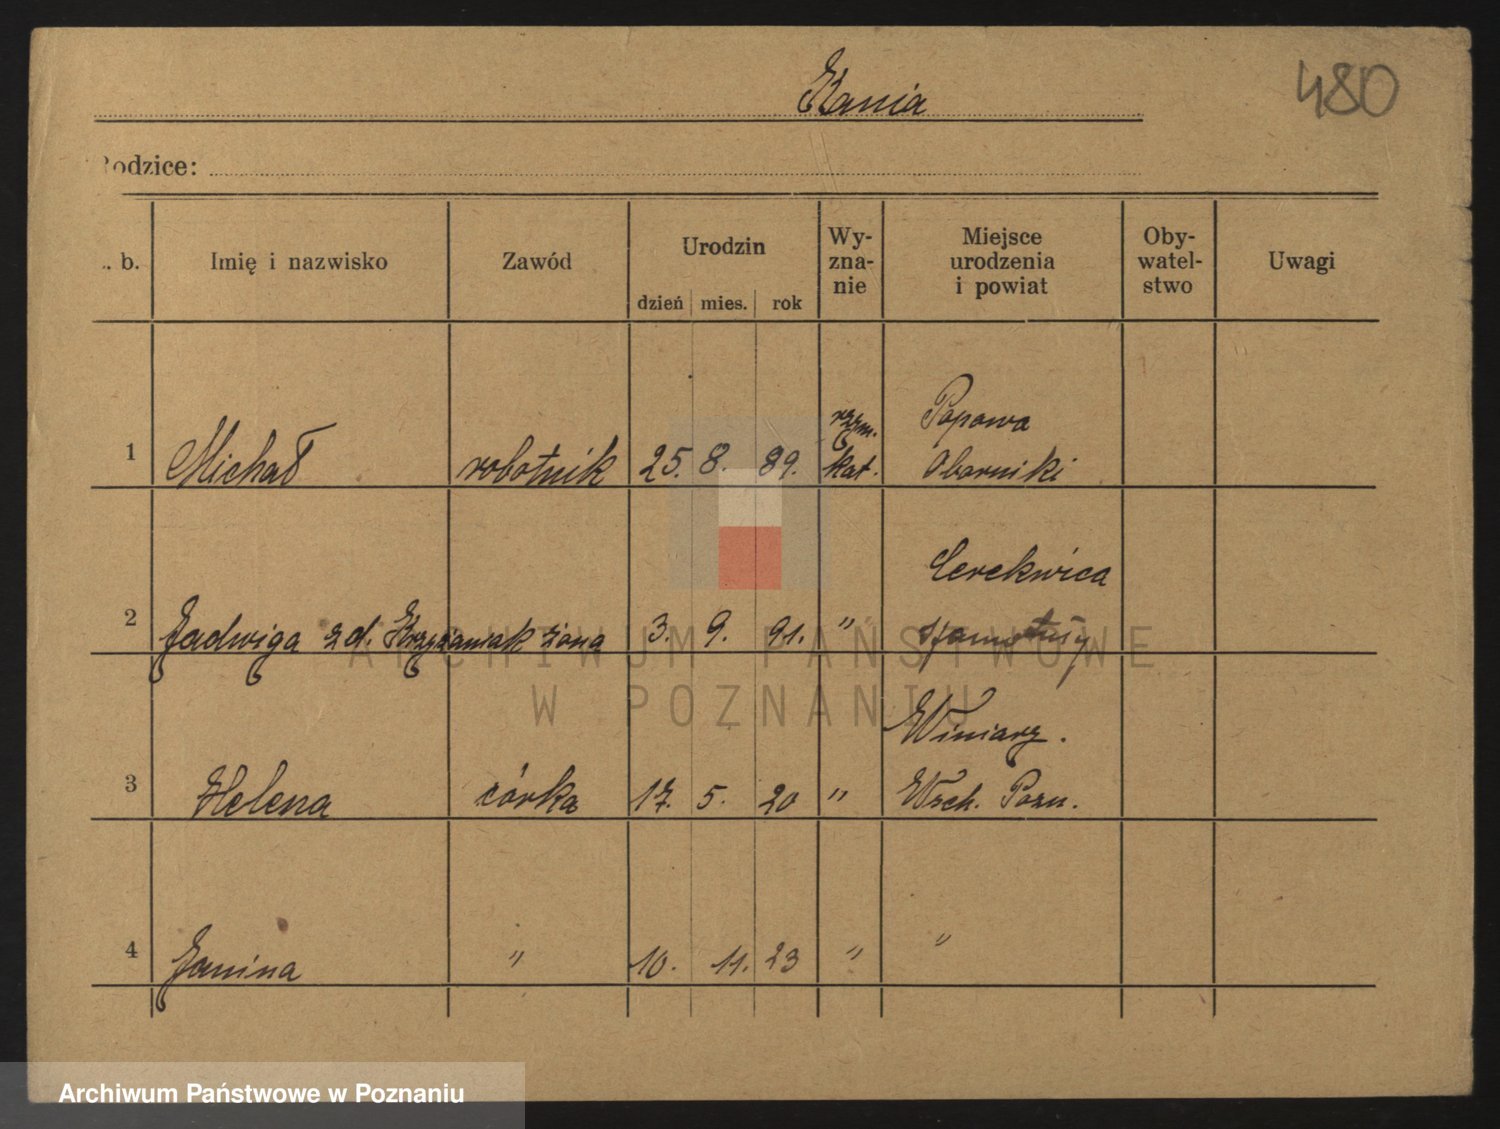 Kania
480
Rodzice:
L. b. Imię i nazwisko Zawód Urodzin dzień mies. rok Wy-zna-nie Miejsce urodzenia i powiat Oby-watel-stwo Uwagi
rzym. Popowa
1 Michał robotnik 25. 8. 89. kat. Oborniki
Cerekwica
2 Jadwiga z d. Krzyżaniak żona 3. 9. 91. " Szamotuły
ARCHIWUM PAŃSTWOWE
W POZNANIU
Winiary.
3 Helena córka 17. 5. 20 " Wsch. Pozn.
4 Janina " 10. 11. 23 " "
Archiwum Państwowe w Poznaniu